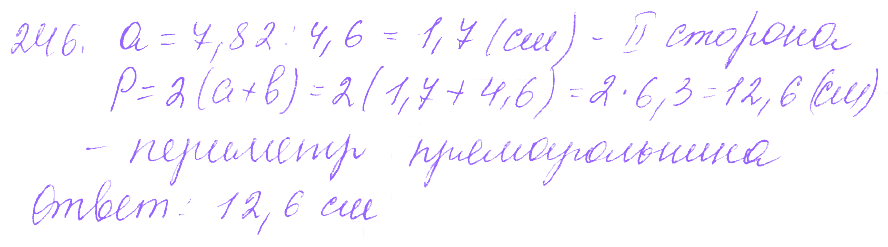 246. a = 7,82 : 4,6 = 1,7 (см) - II сторона
P = 2(a+b) = 2(1,7+4,6) = 2·6,3 = 12,6 (см)
- периметр прямоугольника
Ответ: 12,6 см